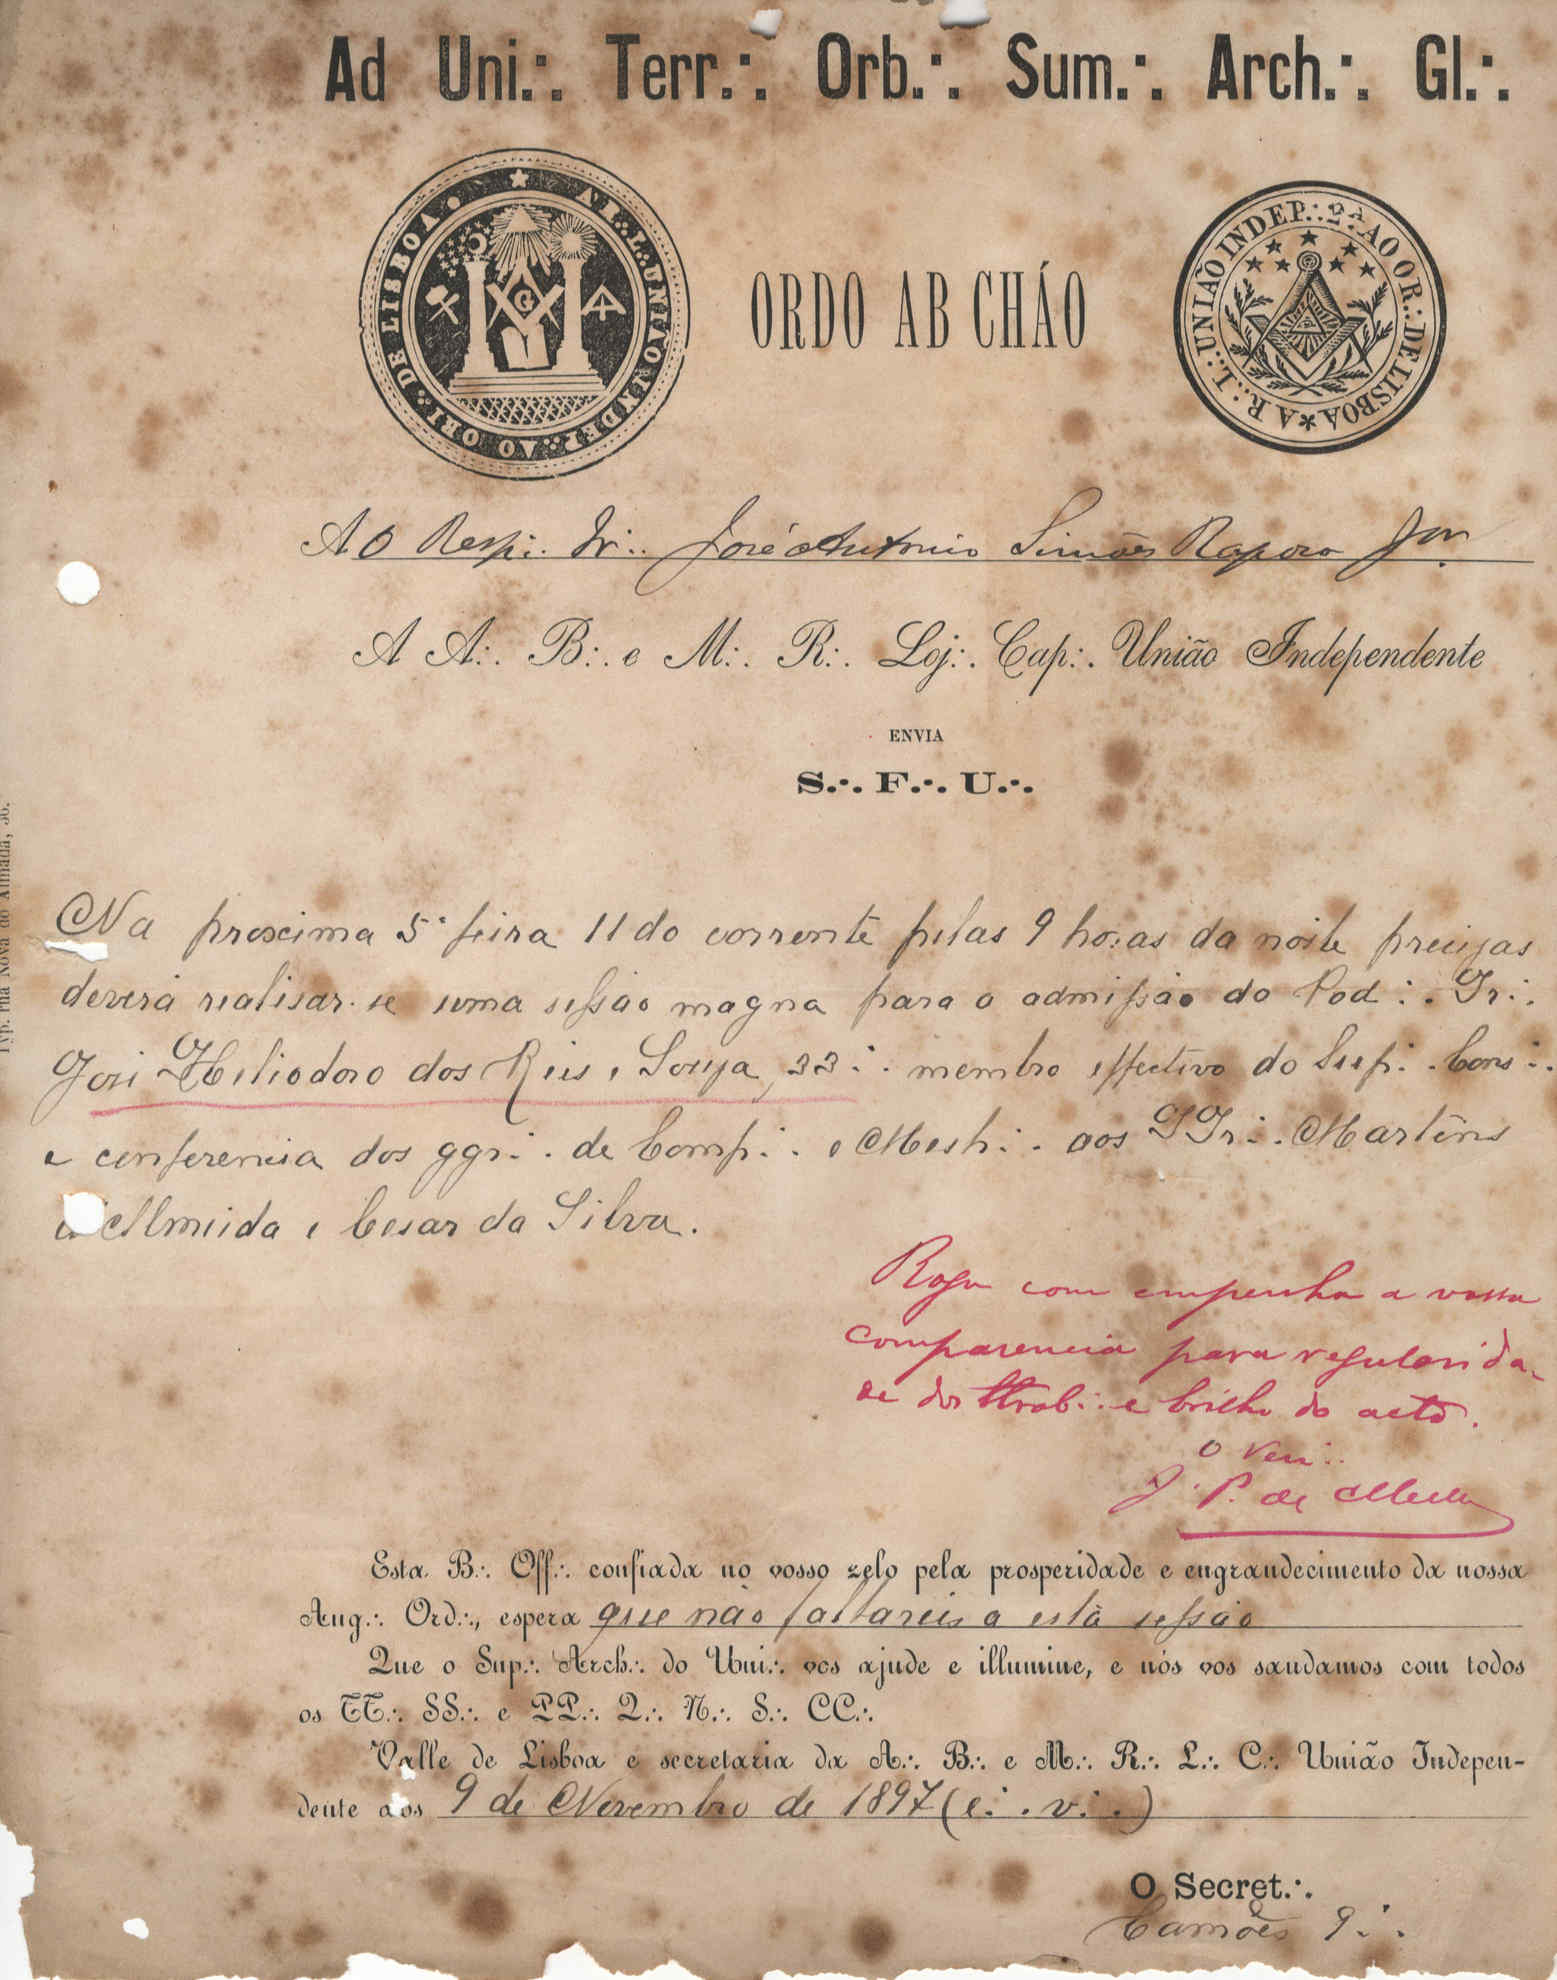 Ad Uni.·. Terr.·. Orb.·. Sum.·. Arch.·. Gl.·.
A L.·. L.·. UNIÃO INDEP.·. AO ORI.·. DE LISBOA
ORDO AB CHÁO
A R.·. L.·. UNIÃO INDEP.·. 2ª AO OR.·. DE LISBOA
Ao Resp.·. Ir.·. José Antonio Simões Raposo Jor
A A.·. B.·. e M.·. R.·. Loj.·. Cap.·. União Independente
ENVIA
S.·. F.·. U.·.
Na proxima 5ª feira 11 do corrente pelas 9 horas da noite precizas
deverá realisar-se uma sessão magna para a admissão do Pod.·. Ir.·.
José Heliodoro dos Reis e Souza, 33.·. membro effectivo do Sup.·. Cons.·.
e conferencia dos ggr.·. de Comp.·. e Mest.·. aos IIr.·. Martins
d'Almeida e Cesar da Silva.
Rogo com empenho a vossa
comparencia para regularida-
de dos ttrab.·. e brilho do acto.
O Ven.·.
J. P. de
Esta B.·. Off.·. confiada no vosso zelo pela prosperidade e engrandecimento da nossa
Aug.·. Ord.·., espera que não faltareis a esta sessão
Que o Sup.·. Arch.·. do Uni.·. vos ajude e illumine, e nós vos saudamos com todos
os TT.·. SS.·. e PP.·. Q.·. N.·. S.·. CC.·.
Valle de Lisboa e secretaria da A.·. B.·. e M.·. R.·. L.·. C.·. União Indepen-
dente aos 9 de Novembro de 1897 (e.·. v.·.)
O Secret.·.
Camões 9.·.
Typ. Rua Nova do Almada, 36.